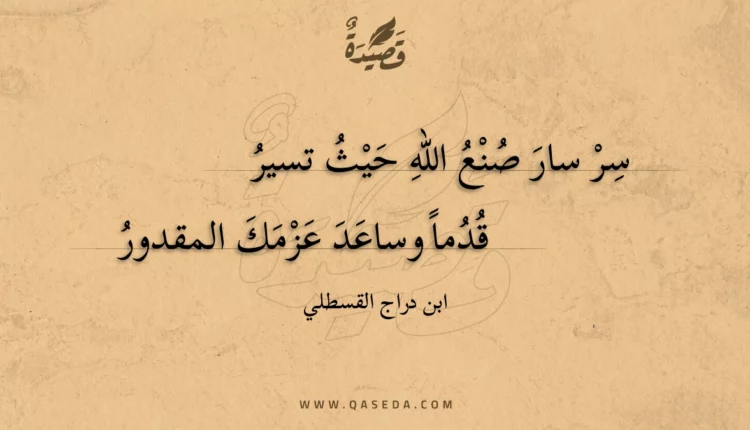 قَصِيْدَةٌ
سِرْ سارَ صُنْعُ اللهِ حَيْثُ تسيرُ
قُدُماً وساعَدَ عَزْمَكَ المقدورُ
ابن دراج القسطلي
WWW.QASEDA.COM